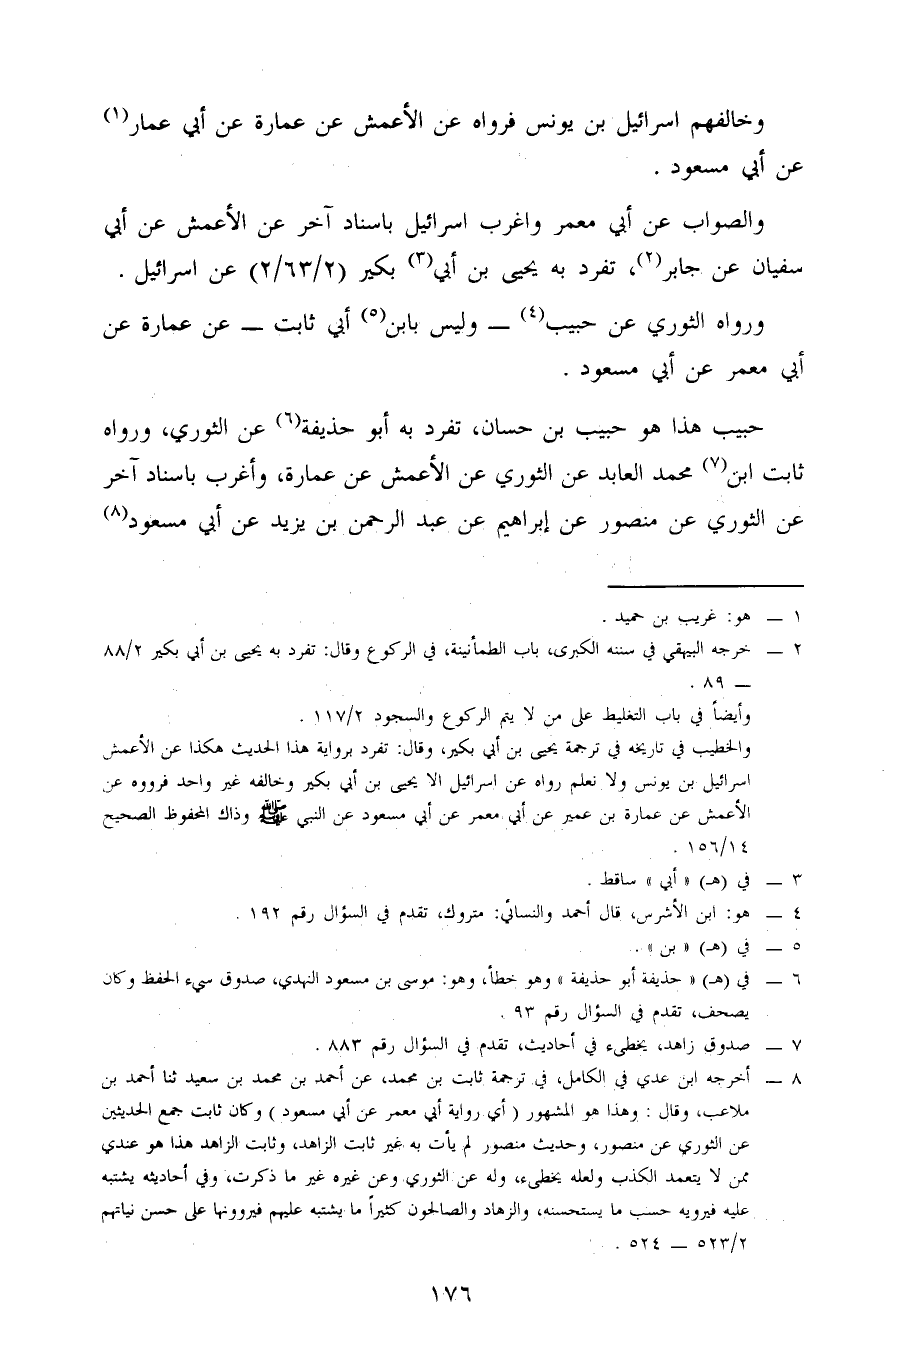 وخالفهم اسرائيل بن يونس فرواه عن الأعمش عن عمارة عن أبي عمار(١)
عن أبي مسعود .
والصواب عن أبي معمر واغرب اسرائيل باسناد آخر عن الأعمش عن أبي
سفيان عن جابر(٢)، تفرد به يحيى بن أبي(٣) بكير (٢/٦٣/٢) عن اسرائيل .
ورواه الثوري عن حبيب(٤) — وليس بابن(٥) أبي ثابت — عن عمارة عن
أبي معمر عن أبي مسعود .
حبيب هذا هو حبيب بن حسان، تفرد به أبو حذيفة(٦) عن الثوري، ورواه
ثابت ابن(٧) محمد العابد عن الثوري عن الأعمش عن عمارة، وأغرب باسناد آخر
عن الثوري عن منصور عن إبراهيم عن عبد الرحمن بن يزيد عن أبي مسعود(٨)
١ — هو: غريب بن حميد .
٢ — خرجه البيهقي في سننه الكبرى، باب الطمأنينة، في الركوع وقال: تفرد به يحيى بن أبي بكير ٨٨/٢
— ٨٩ .
وأيضاً في باب التغليظ على من لا يتم الركوع والسجود ١١٧/٢ .
والخطيب في تاريخه في ترجمة يحيى بن أبي بكير، وقال: تفرد برواية هذا الحديث هكذا عن الأعمش
اسرائيل بن يونس ولا نعلم رواه عن اسرائيل الا يحيى بن أبي بكير وخالفه غير واحد فرووه عن
الأعمش عن عمارة بن عمير عن أبي معمر عن أبي مسعود عن النبي ﷺ وذاك المحفوظ الصحيح
١٥٦/١٤ .
٣ — في (هـ) « أبي » ساقط .
٤ — هو: ابن الأشرس، قال أحمد والنسائي: متروك، تقدم في السؤال رقم ١٩٢ .
٥ — في (هـ) « بن » .
٦ — في (هـ) « حذيفة أبو حذيفة » وهو خطأ، وهو: موسى بن مسعود النهدي، صدوق سيء الحفظ وكان
يصحف، تقدم في السؤال رقم ٩٣ .
٧ — صدوق زاهد، يخطىء في أحاديث، تقدم في السؤال رقم ٨٨٣ .
٨ — أخرجه ابن عدي في الكامل، في ترجمة ثابت بن محمد، عن أحمد بن محمد بن سعيد ثنا أحمد بن
ملاعب، وقال : وهذا هو المشهور ( أي رواية أبي معمر عن أبي مسعود ) وكان ثابت جمع الحديثين
عن الثوري عن منصور، وحديث منصور لم يأت به غير ثابت الزاهد، وثابت الزاهد هذا هو عندي
ممن لا يتعمد الكذب ولعله يخطىء، وله عن الثوري وعن غيره غير ما ذكرت، وفي أحاديثه يشتبه
عليه فيرويه حسب ما يستحسنه، والزهاد والصالحون كثيراً ما يشتبه عليهم فيروونها على حسن نياتهم
٥٢٣/٢ — ٥٢٤ .
١٧٦